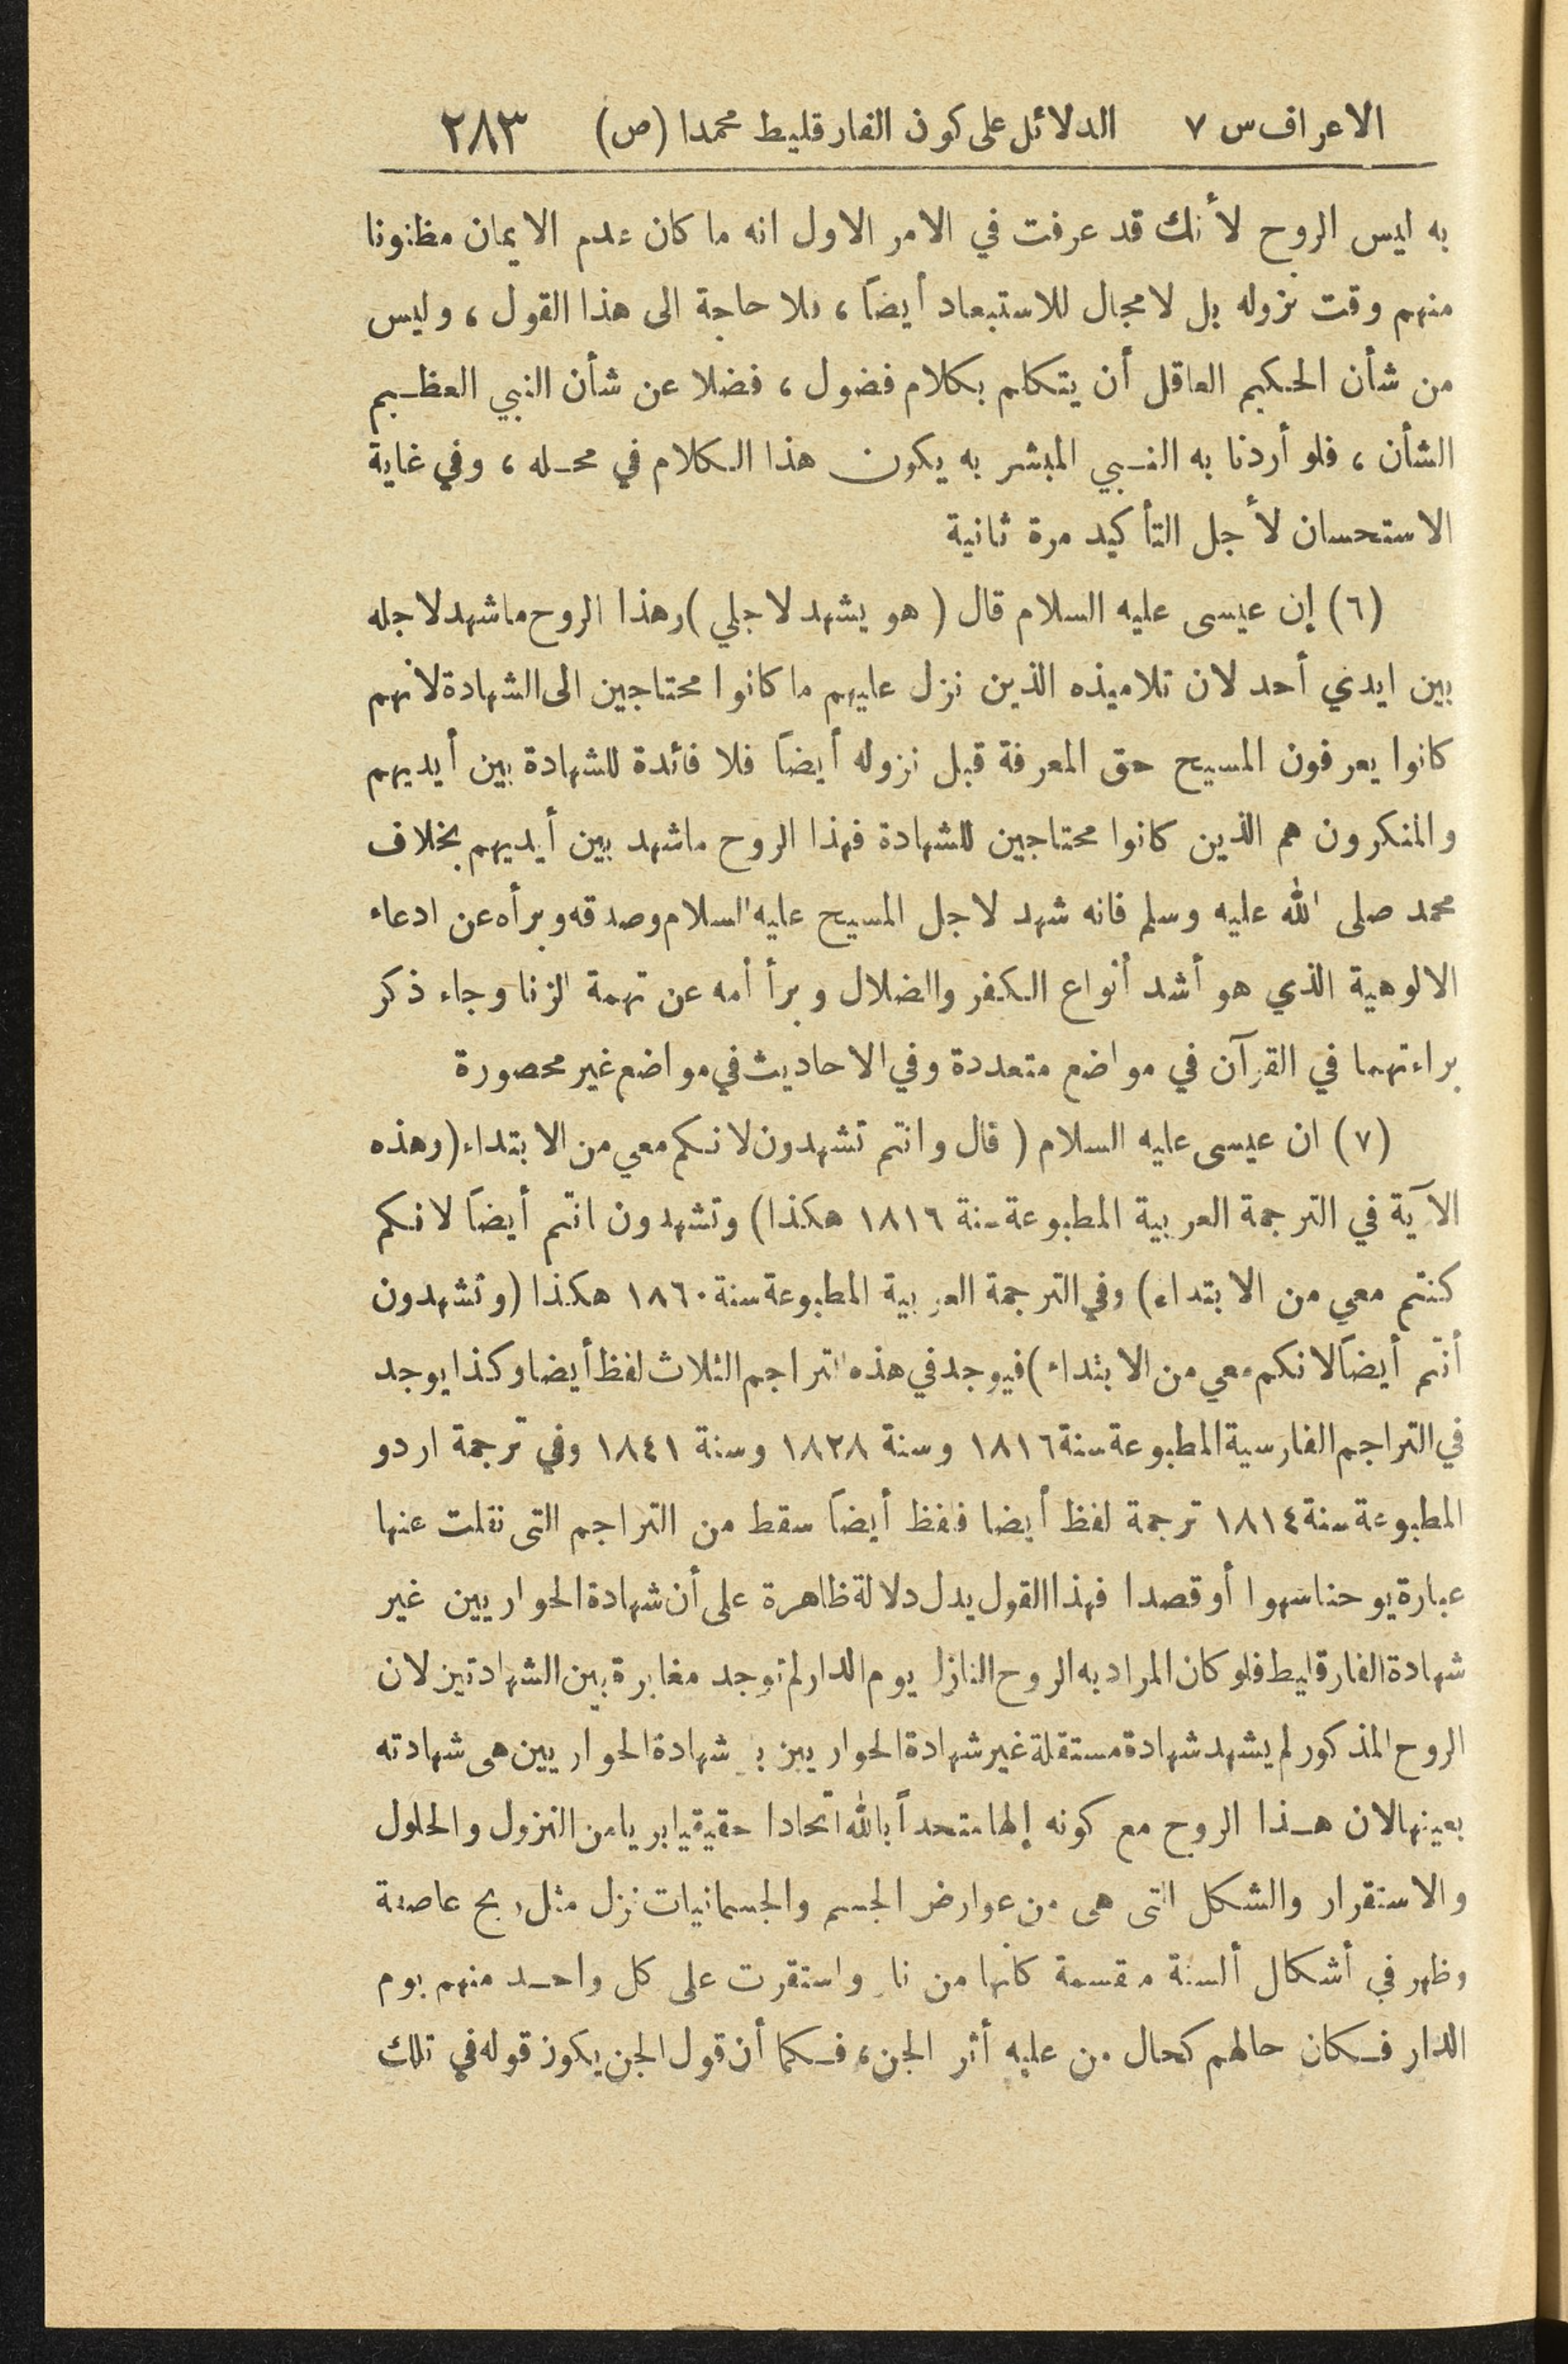 الاعراف س ٧ الدلائل على كون الفارقليط محمدا (ص) ٢٨٣
به ليس الروح لأنك قد عرفت في الامر الاول انه ما كان عدم الايمان مظنونا
منهم وقت نزوله بل لا مجال للاستبعاد أيضاً ، فلا حاجة الى هذا القول ، وليس
من شأن الحكيم العاقل أن يتكلم بكلام فضول ، فضلا عن شأن النبي العظيم
الشأن ، فلو أردنا به النبي المبشر به يكون هذا الكلام في محله ، وفي غاية
الاستحسان لأجل التأكيد مرة ثانية
(٦) إن عيسى عليه السلام قال ( هو يشهد لاجلي ) وهذا الروح ما شهد لاجله
بين ايدي أحد لان تلاميذه الذين نزل عليهم ما كانوا محتاجين الى الشهادة لانهم
كانوا يعرفون المسيح حق المعرفة قبل نزوله أيضاً فلا فائدة للشهادة بين أيديهم
والمنكرون هم الذين كانوا محتاجين للشهادة فهذا الروح ماشهد بين أيديهم بخلاف
محمد صلى الله عليه وسلم فانه شهد لاجل المسيح عليه السلام وصدقه وبرأه عن ادعاء
الالوهية الذي هو أشد أنواع الكفر والضلال وبرأ أمه عن تهمة الزنا وجاء ذكر
براءتهما في القرآن في مواضع متعددة وفي الاحاديث في مواضع غير محصورة
(٧) ان عيسى عليه السلام ( قال وانتم تشهدون لانكم معي من الابتداء ( وهذه
الآية في الترجمة العربية المطبوعة سنة ١٨١٦ هكذا ) وتشهدون انتم أيضاً لانكم
كنتم معي من الابتداء ) وفي الترجمة العربية المطبوعة سنة ١٨٦٠ هكذا (وتشهدون
أنتم أيضاً لانكم معي من الابتداء ) فيوجد في هذه التراجم الثلاث لفظ أيضا وكذا يوجد
في التراجم الفارسية المطبوعة سنة ١٨١٦ وسنة ١٨٢٨ وسنة ١٨٤١ وفي ترجمة اردو
المطبوعة سنة ١٨١٤ ترجمة لفظ أيضا فلفظ أيضاً سقط من التراجم التى نقلت عنها
عبارة يوحنا سهوا أو قصدا فهذا القول يدل دلالة ظاهرة على أن شهادة الحواريين غير
شهادة الفارقليط فلو كان المراد به الروح النازل يوم الدار لم توجد مغايرة بين الشهادتين لان
الروح المذكور لم يشهد شهادة مستقلة غير شهادة الحواريين شهادة الحواريين هى شهادته
بعينها لان هذا الروح مع كونه إلها متحداً بالله اتحادا حقيقيا بريا من النزول والحلول
والاستقرار والشكل التى هى من عوارض الجسم والجسمانيات نزل مثل ريح عاصفة
وظهر في أشكال ألسنة مقسمة كأنها من نار واستقرت على كل واحد منهم يوم
الدار فكان حالهم كحال من عليه أثر الجن ، فكما أن قول الجن يكون قوله في تلك